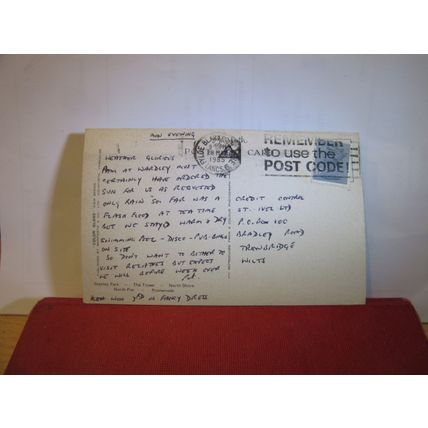 MON EVENING
WEATHER GLORIOUS
PAM AT WARDLEY MUST
CERTAINLY HAVE ORDERED THE
SUN FOR US AS REQUESTED
ONLY RAIN SO FAR WAS A
FLASH FLOOD AT TEA TIME
BUT WE STAYED WARM & DRY
SWIMMING POOL - DISCO - PUB - BINGO
ON SITE
SO DON'T WANT TO BOTHER TO
VISIT RELATIVES BUT EXPECT
WE WILL BEFORE WEEK OVER
Stanley Park - The Tower - North Shore
North Pier - Promenade
WON IN FANCY DRESS
POST CARD
1985
LANCS
REMEMBER
to use the
POST CODE!
CREDIT CONTROL
ST. IVEL LTD
P.O. BOX 100
BRADLEY ROAD
TROWBRIDGE
WILTS